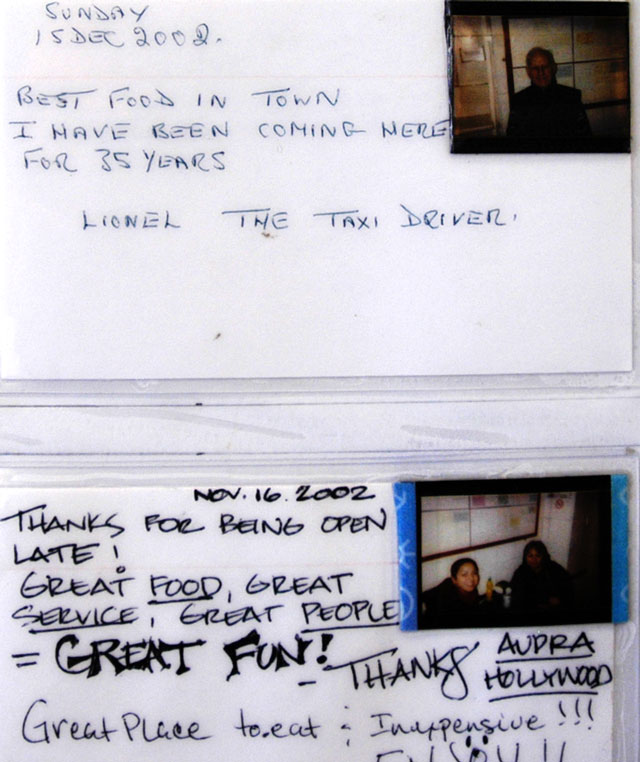 SUNDAY
15 DEC 2002.
BEST FOOD IN TOWN
I HAVE BEEN COMING HERE
FOR 35 YEARS
LIONEL THE TAXI DRIVER.
NOV. 16. 2002
THANKS FOR BEING OPEN
LATE!
GREAT FOOD, GREAT
SERVICE, GREAT PEOPLE
= GREAT FUN!
- THANKS AUDRA
HOLLYWOOD
Great Place to eat & Inexpensive !!!